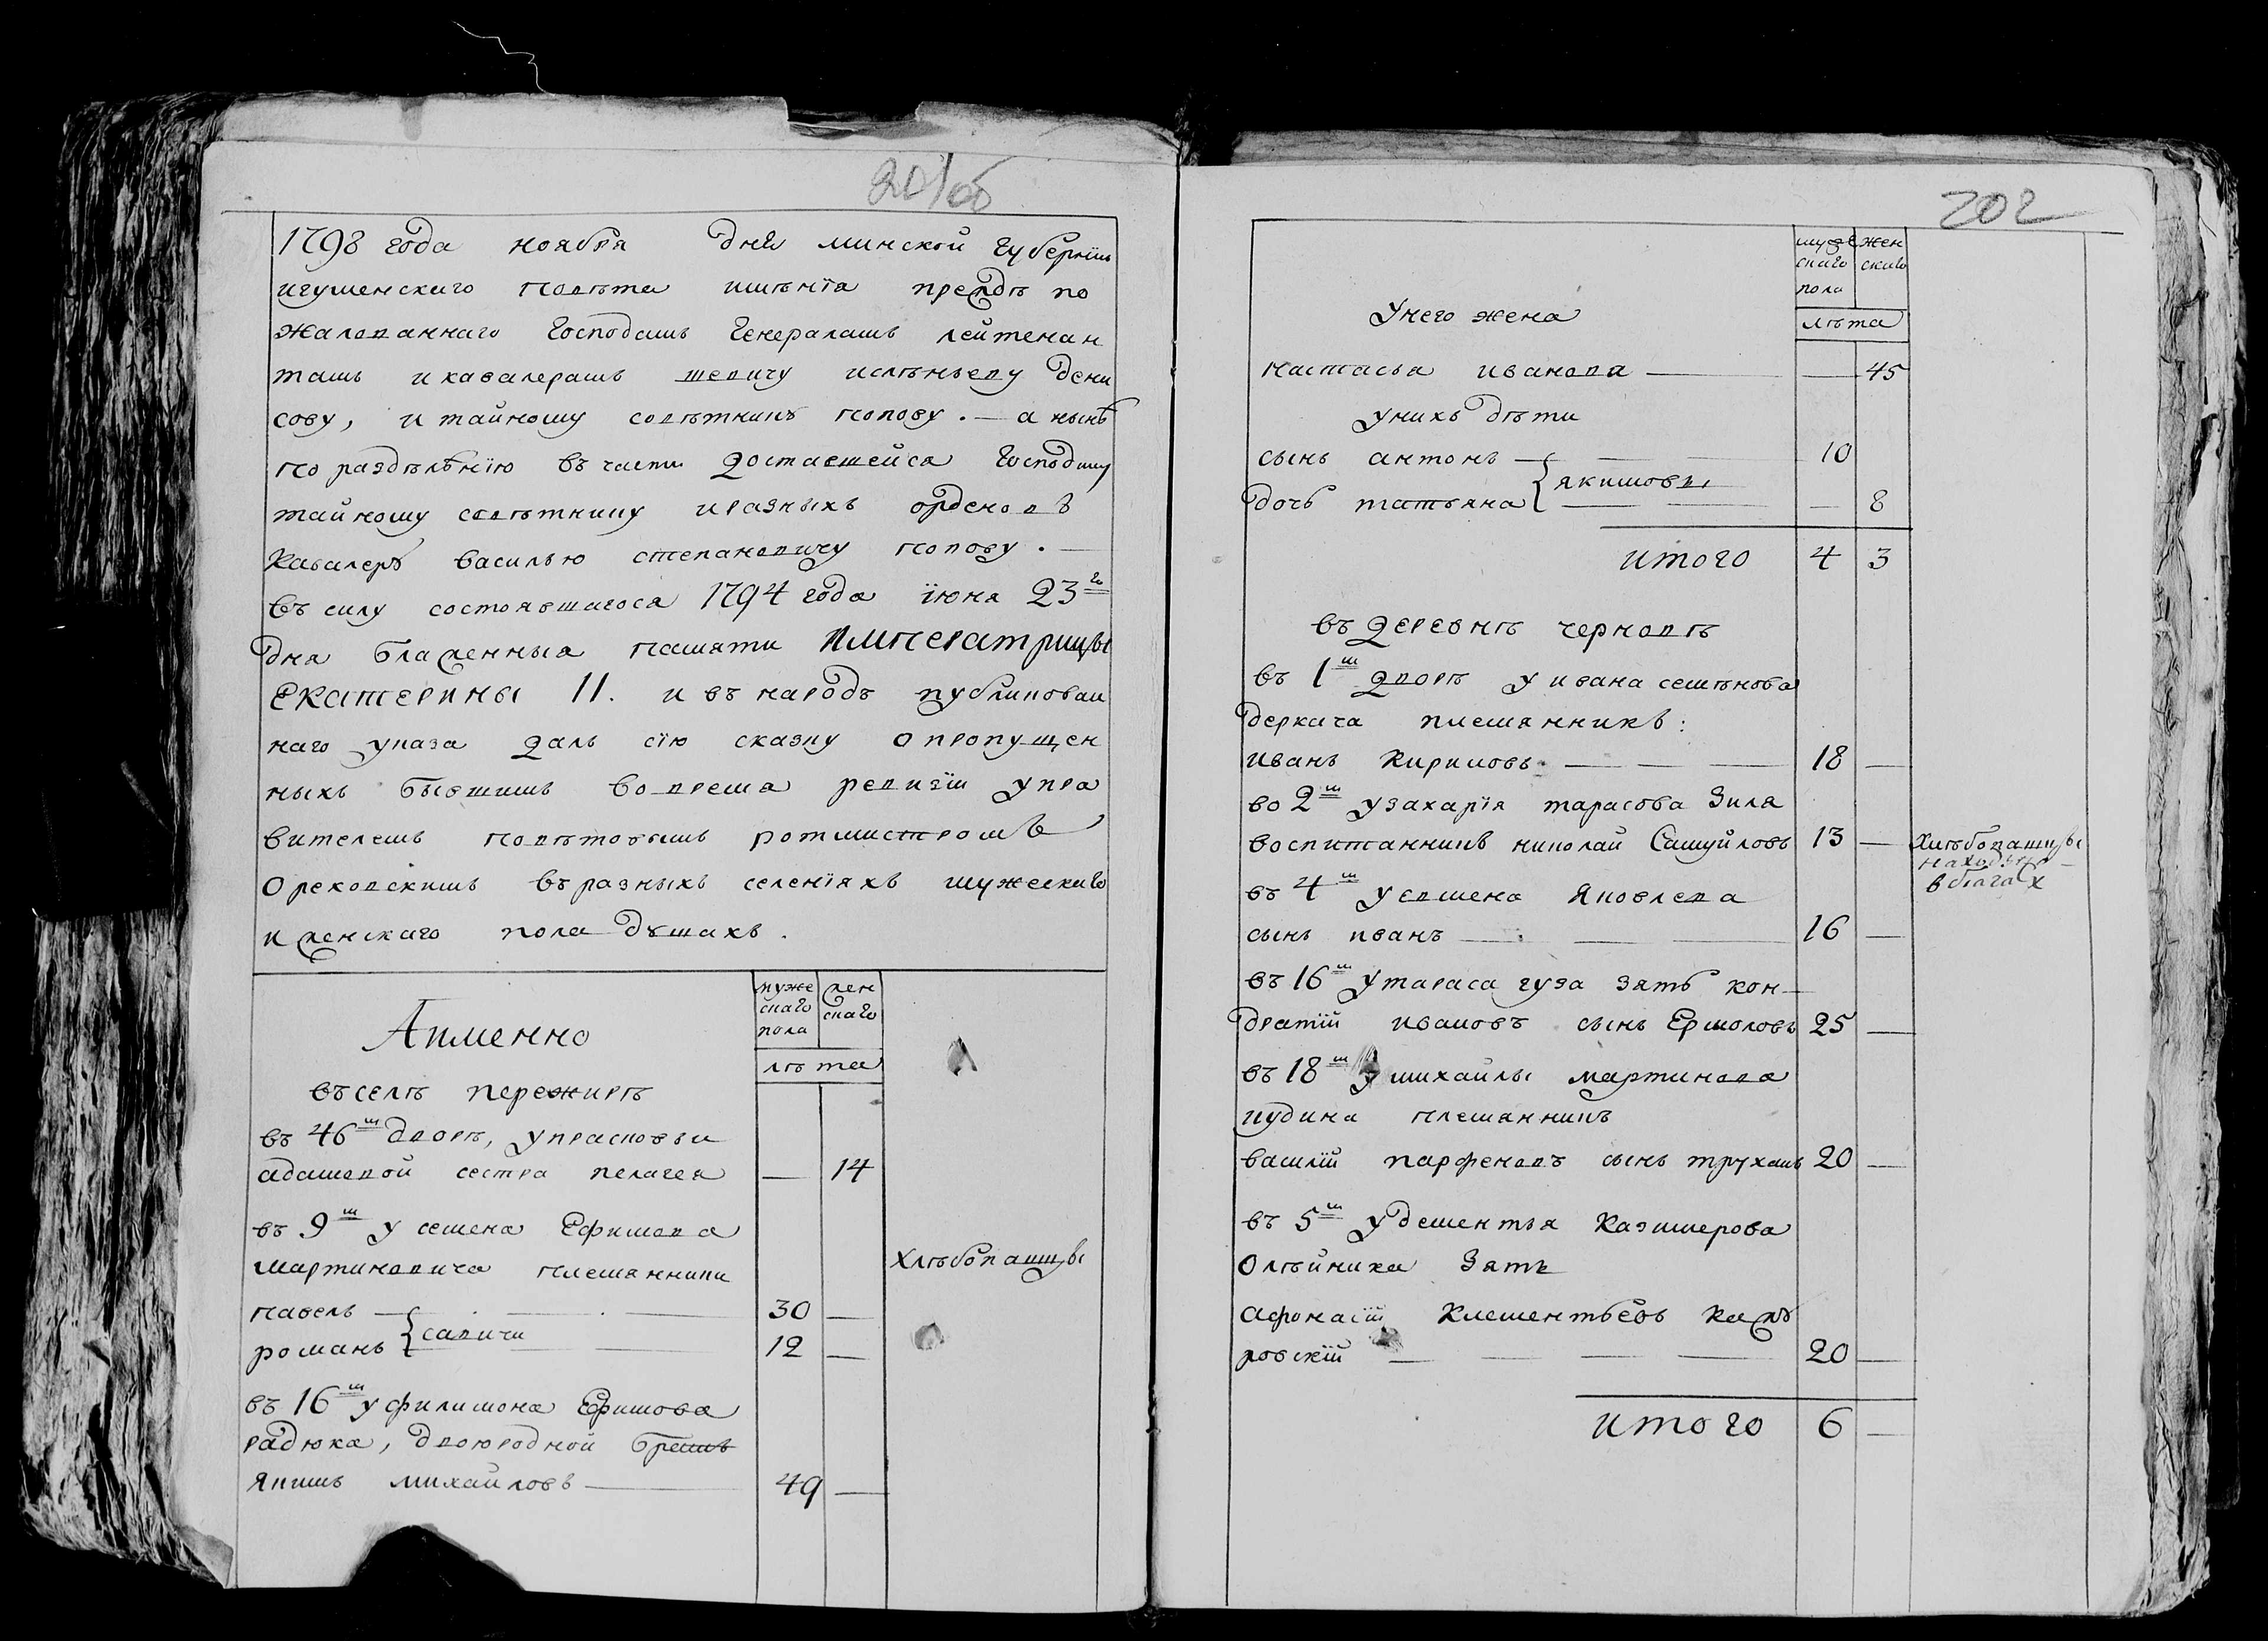 201об
1798 года ноября дня минской губернiи
игуменскаго повѣта имѣнiя прежде по
жалованнаго Господамъ Генераламъ лейтенан
тамъ и кавалерамъ шевичу ислѣньеву Дени
сову, и тайному совѣтникъ попову. — а нынѣ
по раздѣленiю въ части доставшейся Господину
тайному совѣтнику иразныхъ орденовъ
Кавалеръ василью степановичу попову. —
въ силу состоявшагося 1794 года iюня 23го
дня блаженныя памяти ИМПЕРАТРИЦЫ
ЕКАТЕРИНЫ II. и въ народъ публикован
наго указа далъ сiю сказку о пропущен
ныхъ бывшимъ во время ревизiи упра
вителемъ повѣтовымъ ротмистромъ
Ореховскимъ въ разныхъ селенiяхъ мужескаго
и женскаго пола душахъ.
Аименно
муже
скаго
пола
жен
скаго
лѣта
въ селѣ пережирѣ
въ 46м дворѣ, упрасковьи
адамовой сестра пелагея — 14
въ 9м у семена Ефимова
мартиновича племянники
Хлѣбопашцы
павелъ — 30 —
романъ { савичи 12 —
въ 16м у филимона Ефимова
радюка, двоюродной братъ
якимъ михайловъ — 49 —
202
муже
скаго
пола
жен
скаго
лѣта
Унего жена
настасья иванова — — 45
унихъ дѣти
сынъ антонъ — 10
дочь татьяна { якимовы — 8
итого 4 3
въ деревнѣ черновѣ
въ 1м дворѣ у ивана семѣнова
деркача племянникъ:
иванъ Кириловъ — — — 18 —
во 2м узахарiя тарасова Зиля
воспитанникъ николай Самуйловъ 13 —
Хлѣбопашцы
находятся
в бѣгах
въ 4м уевмена Яковлева
сынъ иванъ — — — 16 —
въ 16м утараса гуза зять кон—
дратiй ивановъ сынъ Ермоловъ 25 —
въ 18м у михайлы мартинова
кудина племянникъ
василiй парфеновъ сынъ трухамъ 20 —
въ 5м удементья Казимерова
Олѣйника Зять
афонасiй Клементьевъ
ровскiй — — — — 20 —
итого 6 —